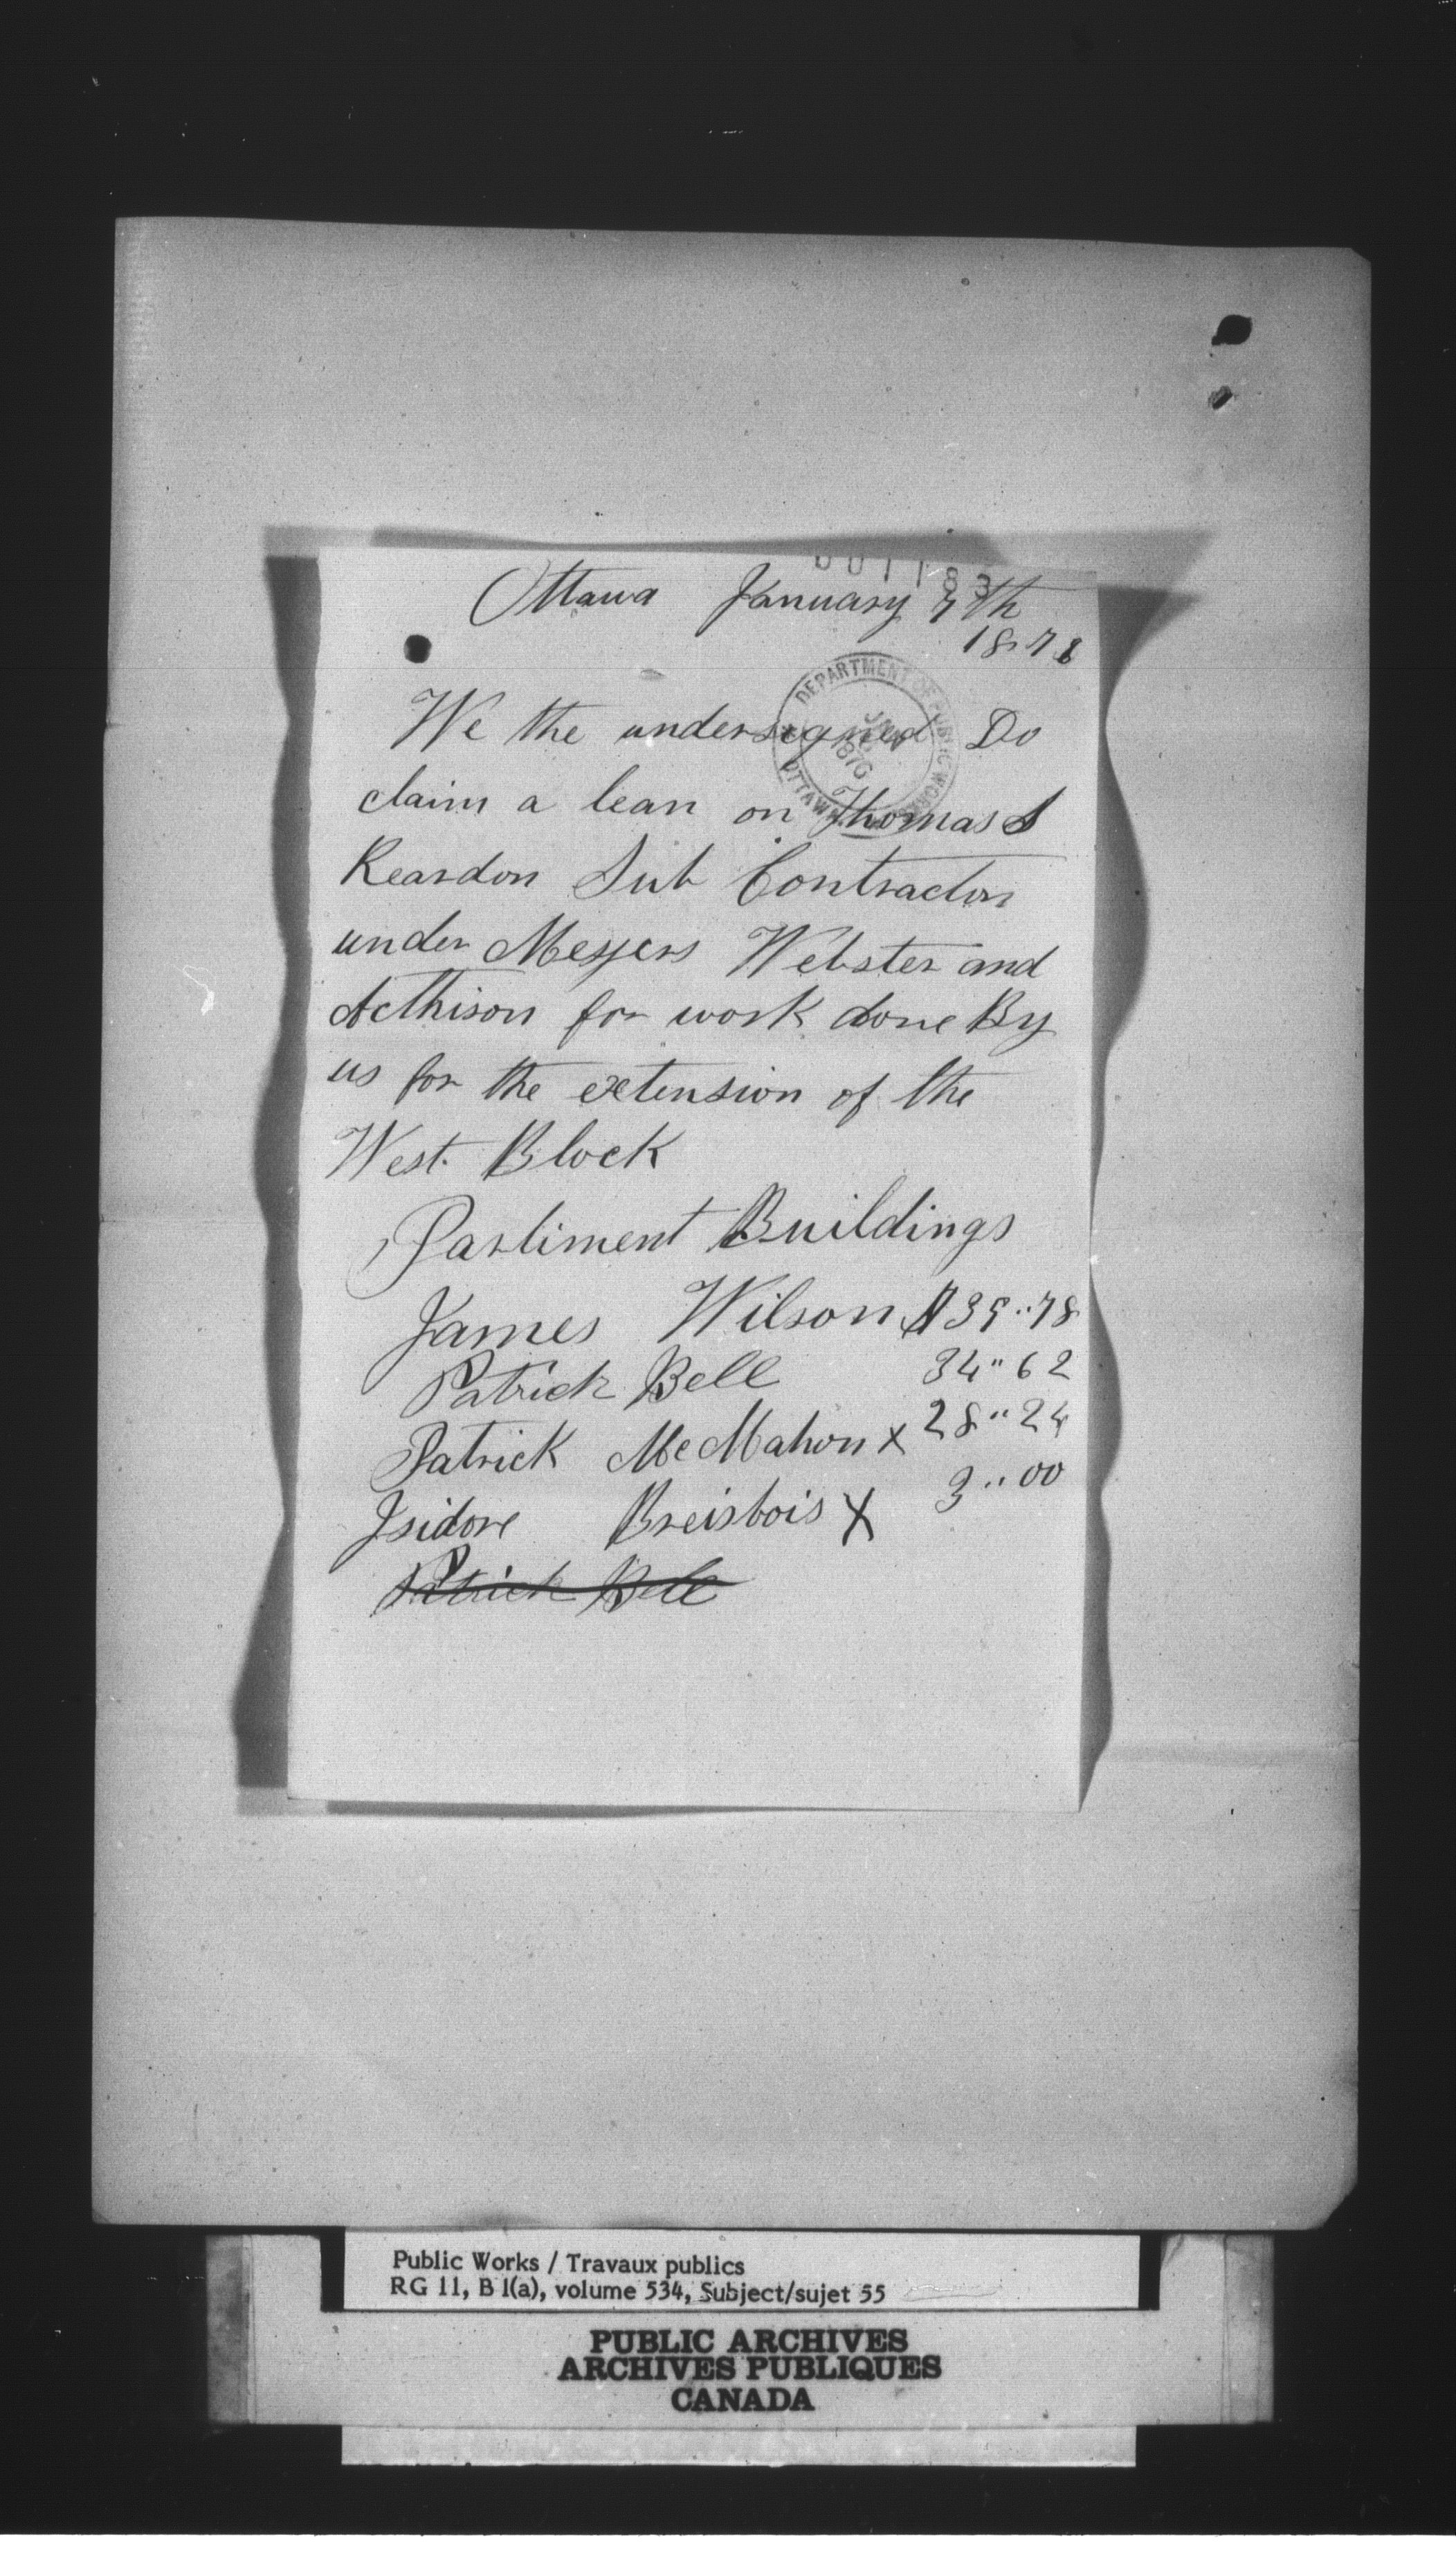 Ottawa January 7th
1876
DEPARTMENT OF PUBLIC WORKS
JAN
1876
OTTAWA
We the undersigned Do
claim a lean on Thomas S
Reardon Sub Contractor
under Messers Webster and
Acthison for work done By
us for the extension of the
West Block
Parliment Buildings
James Wilson $39..78
Patrick Bell 34" 62
Patrick McMahon x 28" 24
Isidore Breisbois X 3..00
Patrick Bell
Public Works / Travaux publics
RG 11, B 1(a), volume 534, Subject/sujet 55
PUBLIC ARCHIVES
ARCHIVES PUBLIQUES
CANADA